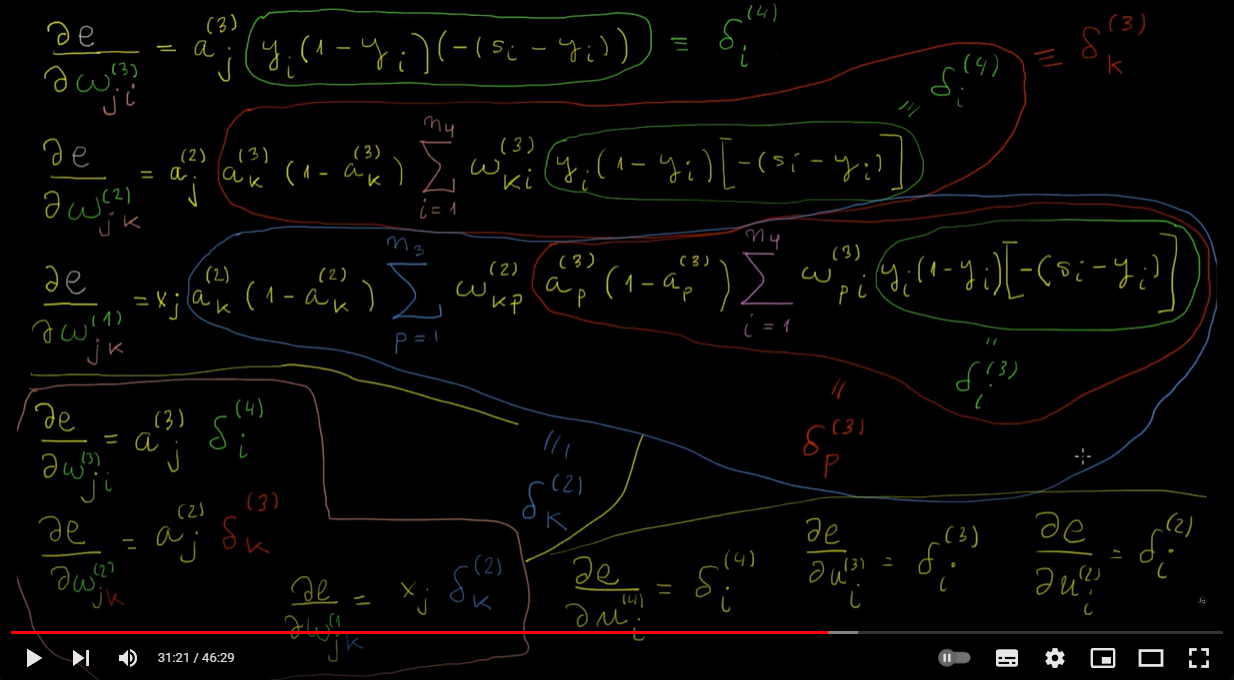 ∂e/∂ω_{ji}^{(3)} = a_j^{(3)} y_i (1 - y_i)(-(s_i - y_i)) ≡ δ_i^{(4)}
≡ δ_k^{(3)}
= δ_i^{(4)}
∂e/∂ω_{jk}^{(2)} = a_j^{(2)} a_k^{(3)} (1 - a_k^{(3)}) ∑_{i=1}^{n_4} ω_{ki}^{(3)} y_i (1 - y_i)[-(s_i - y_i)]
∂e/∂ω_{jk}^{(1)} = x_j a_k^{(2)} (1 - a_k^{(2)}) ∑_{p=1}^{n_3} ω_{kp}^{(2)} a_p^{(3)} (1 - a_p^{(3)}) ∑_{i=1}^{n_4} ω_{pi}^{(3)} y_i (1 - y_i)[-(s_i - y_i)]
" δ_i^{(3)}
= δ_p^{(3)}
≡ δ_k^{(2)}
∂e/∂ω_{ji}^{(3)} = a_j^{(3)} δ_i^{(4)}
∂e/∂ω_{jk}^{(2)} = a_j^{(2)} δ_k^{(3)}
∂e/∂ω_{jk}^{(1} = x_j δ_k^{(2)}
∂e/∂u_i^{(4)} = δ_i^{(4)}
∂e/∂u_i^{(3)} = δ_i^{(3)}
∂e/∂u_i^{(2)} = δ_i^{(2)}
31:21 / 46:29